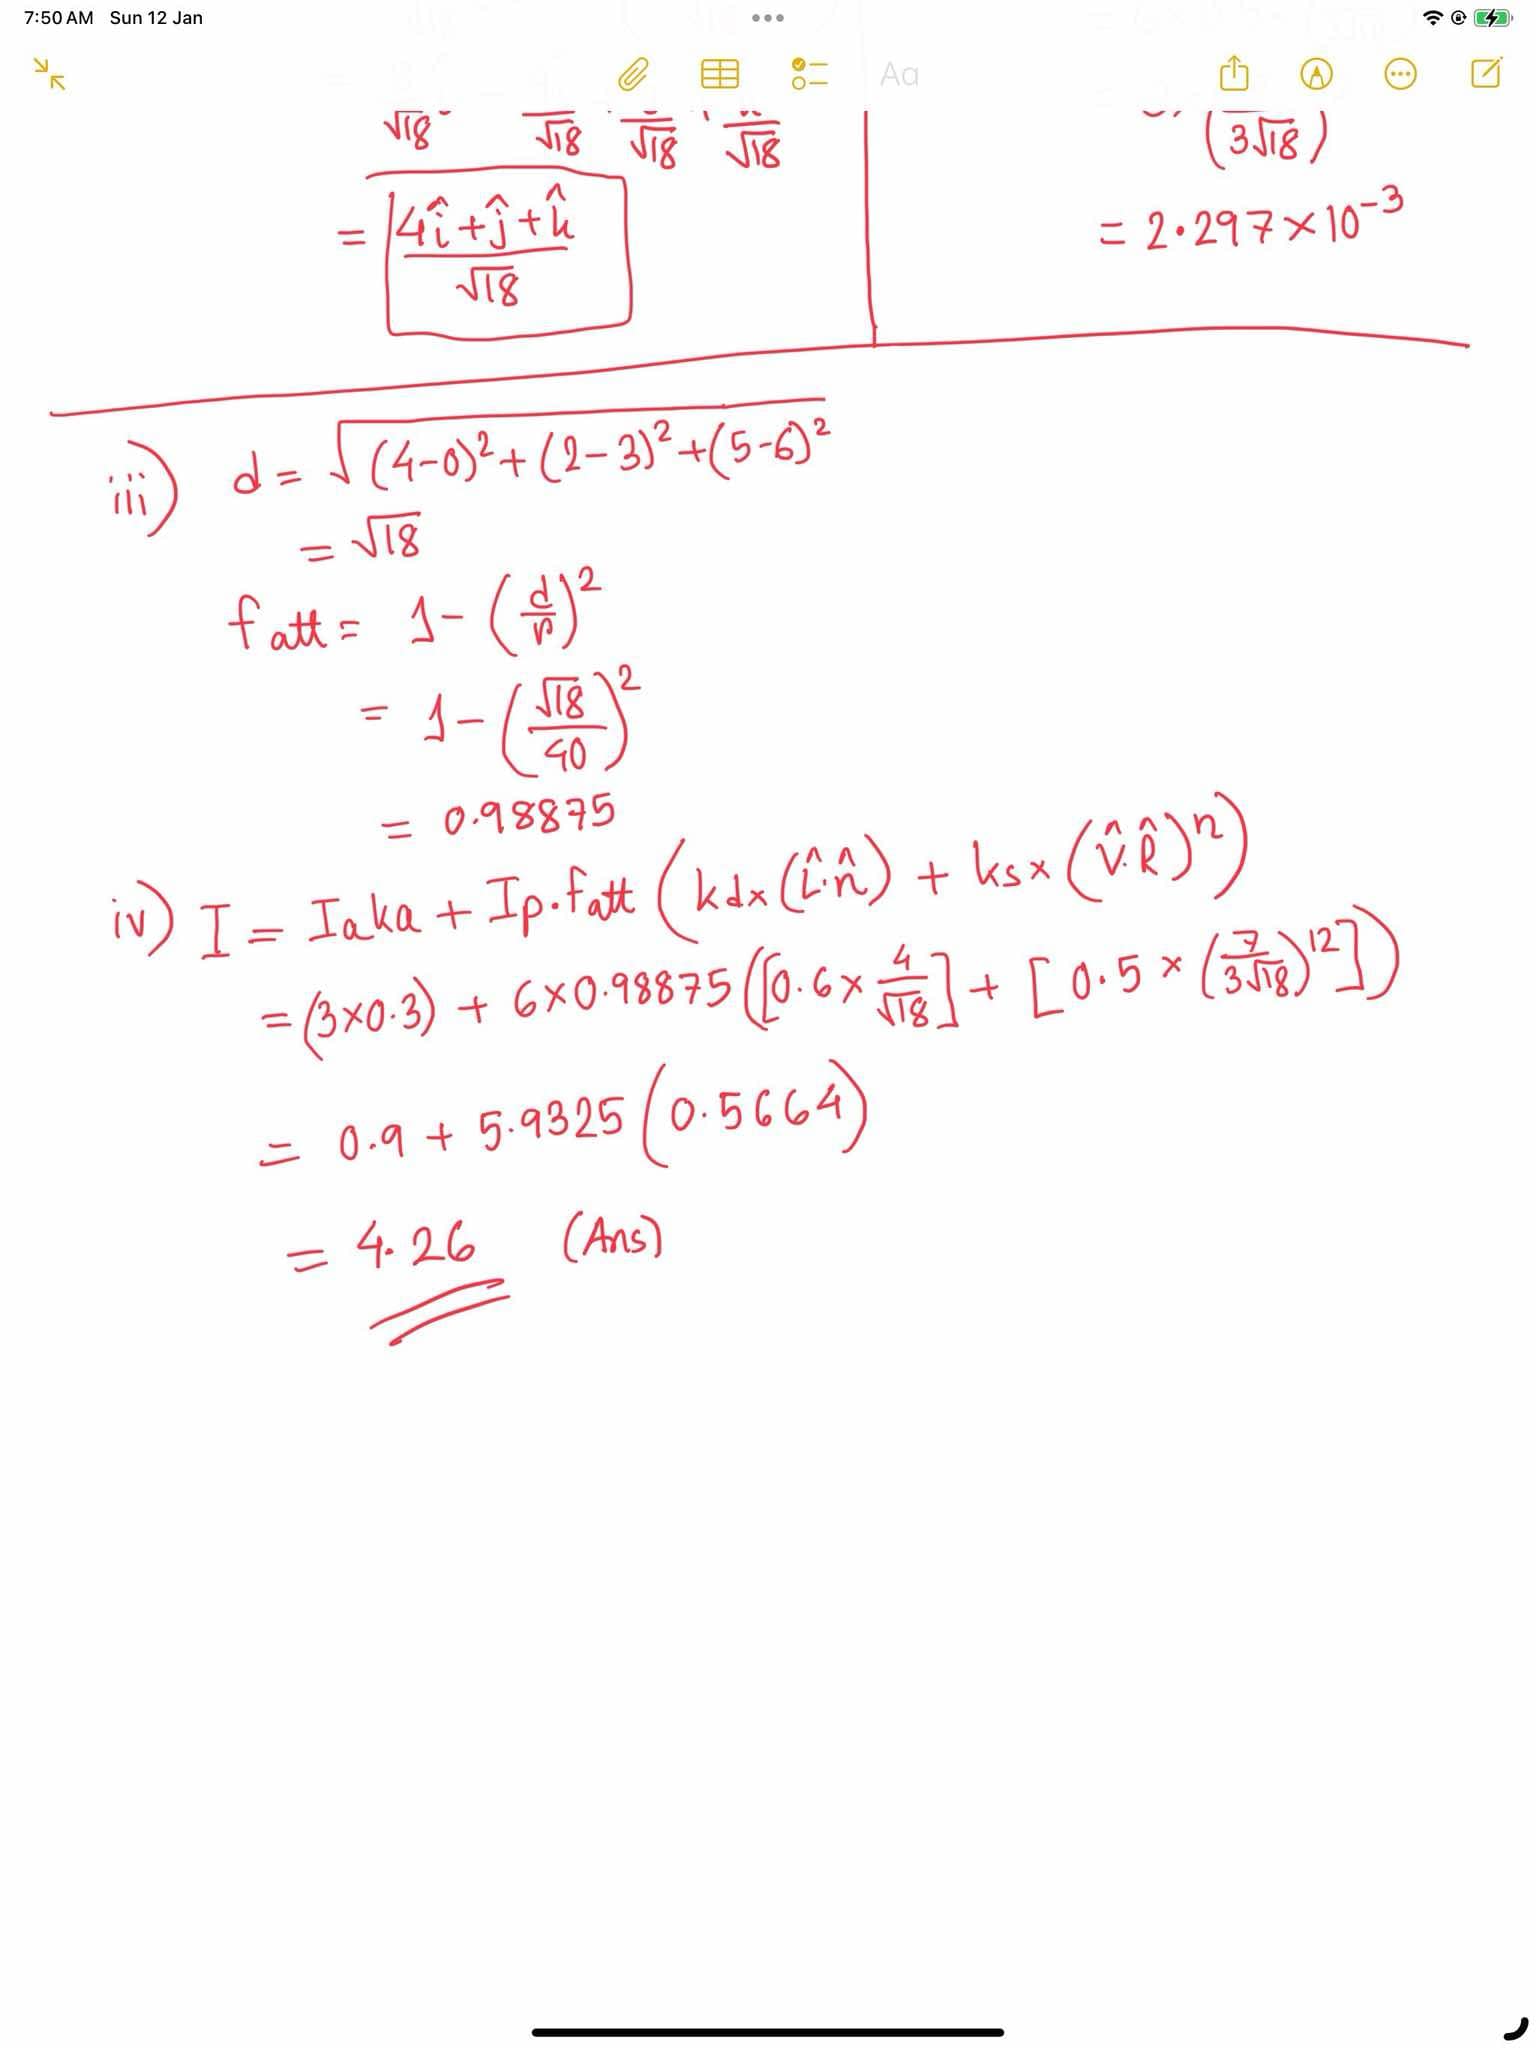 7:50 AM Sun 12 Jan
Aa
√18 √18 √18 √18
= 4î+ĵ+k̂ / √18
(3√18)
= 2.297×10⁻³
iii) d = √((4-0)²+(2-3)²+(5-6)²)
= √18
fatt = 1-(d/r)²
= 1-(√18/40)²
= 0.98875
iv) I = Iaka + Ip.fatt (kd×(L̂.n̂) + ks×(V̂.R̂)ⁿ)
= (3×0.3) + 6×0.98875([0.6×4/√18] + [0.5×(7/3√18)¹²])
= 0.9 + 5.9325(0.5664)
= 4.26 (Ans)